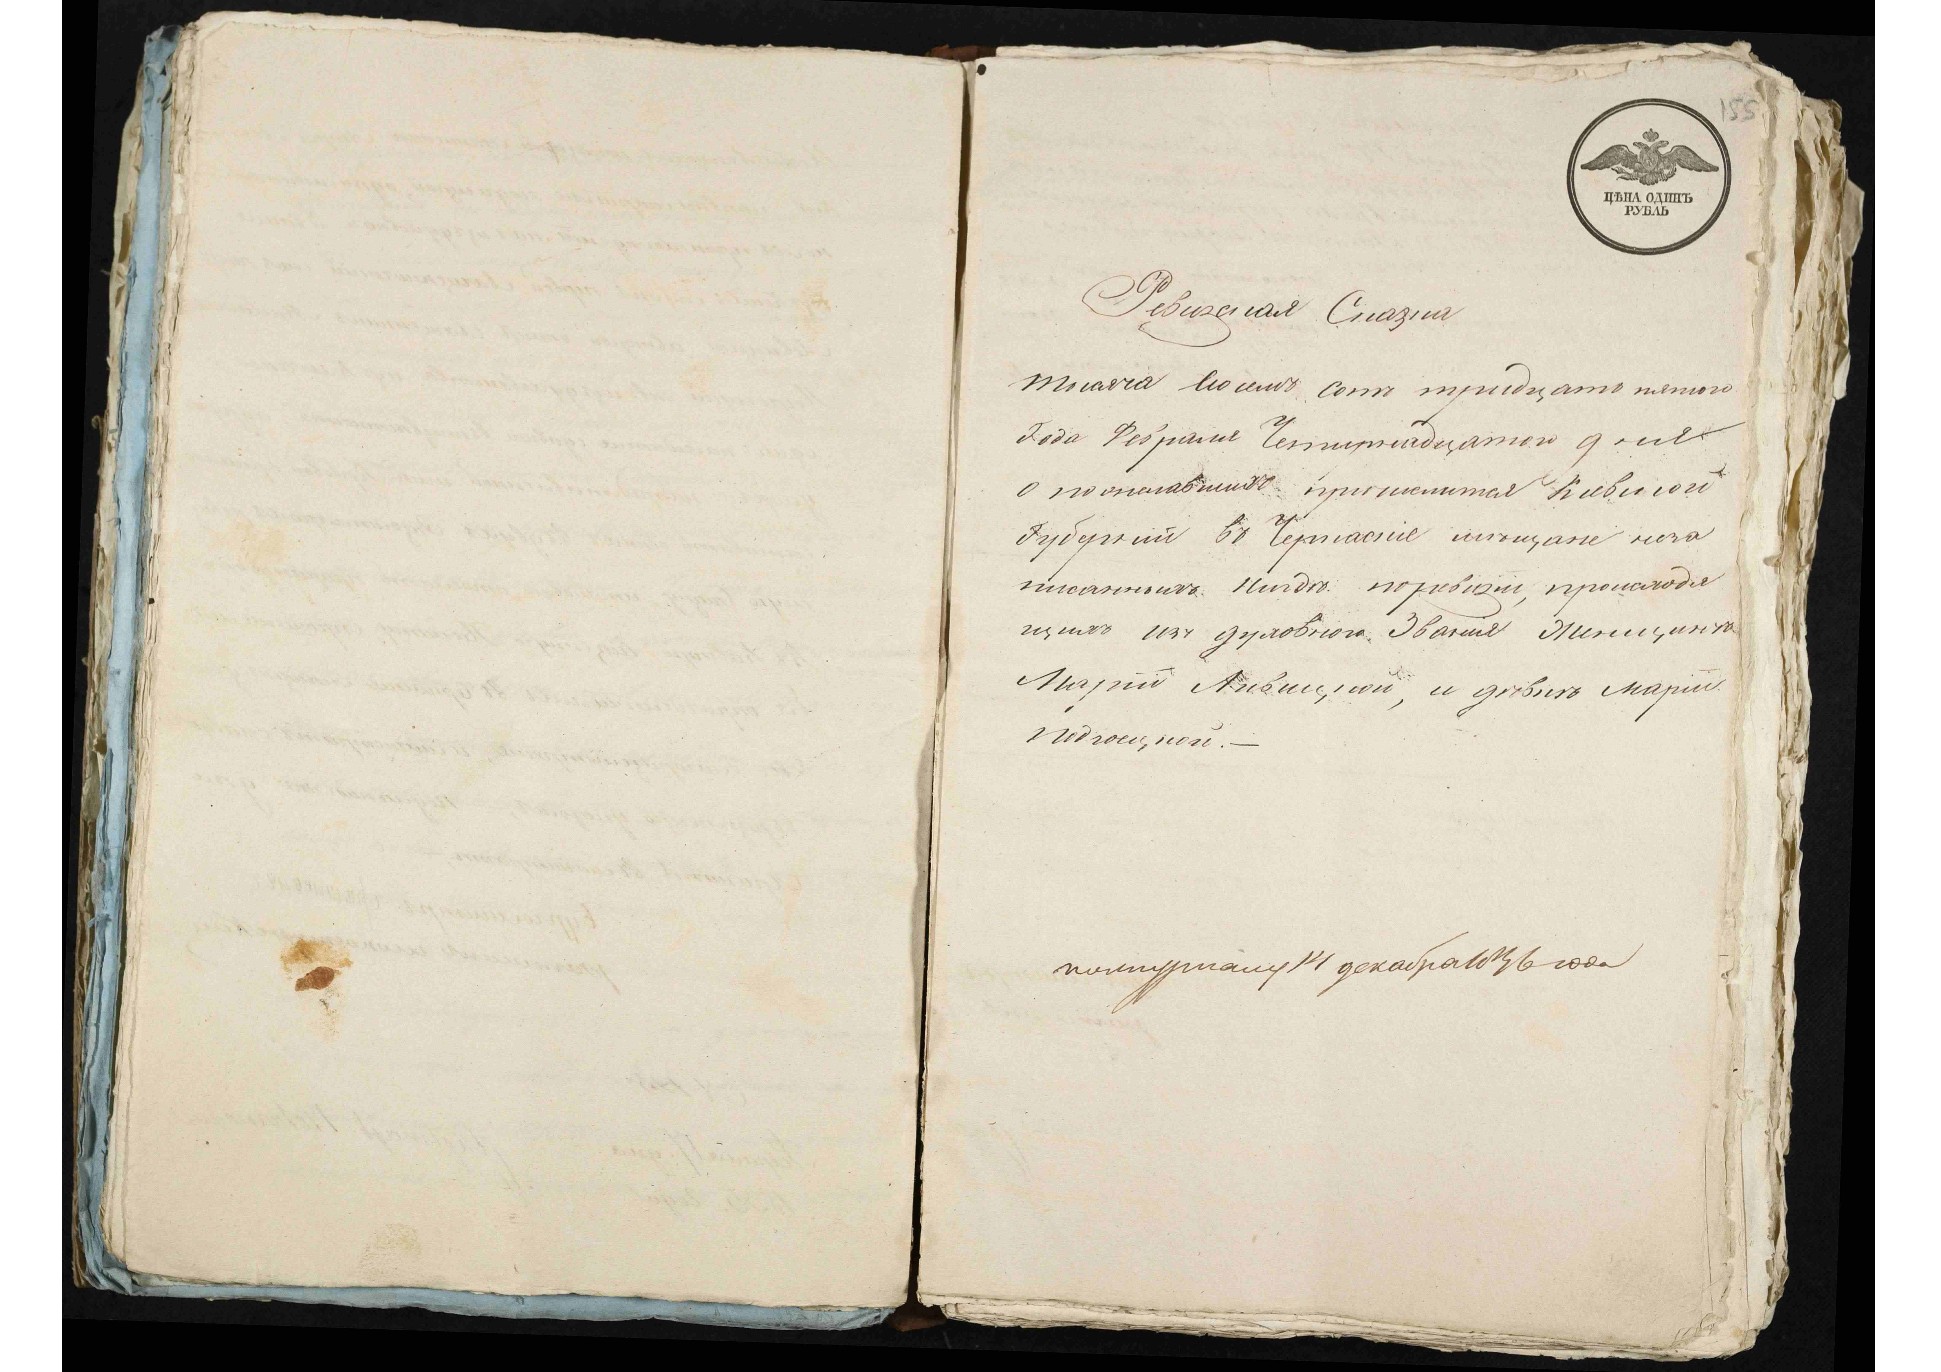 155
ЦѢНА ОДИНЪ
РУБЛЬ
Ревизская Сказка
тысяча восемь сотъ тридцать пятого
Года Февраля Четырнадцатого дня
о пожелавшихъ приписатся Киевской
Губернии въ Черкаские мещане неза
писанныхъ нигде поревизии, происходя
щихъ изъ духовного Звания Женщинъ
Марии Левицкой, и девкъ Марии
Подгоецкой. —
декабра 1836 года